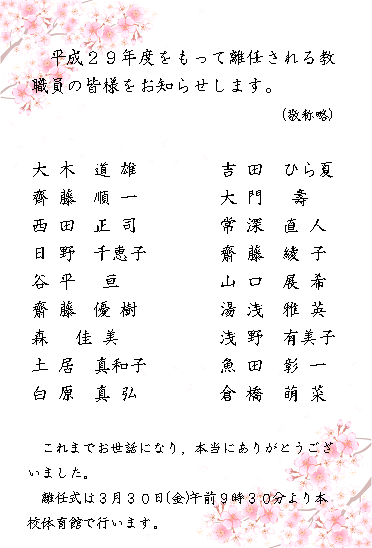 平成２９年度をもって離任される教
職員の皆様をお知らせします。
(敬称略)
大木　道雄　　吉田　ひら夏
齋藤　順一　　大門　壽
西田　正司　　常深　直人
日野　千恵子　　齋藤　綾子
谷平　亘　　山口　展希
齋藤　優樹　　湯浅　雅英
森　佳美　　浅野　有美子
土居　真和子　　魚田　彰一
白原　真弘　　倉橋　萌菜
これまでお世話になり，本当にありがとうござ
いました。
離任式は３月３０日(金)午前９時３０分より本
校体育館で行います。